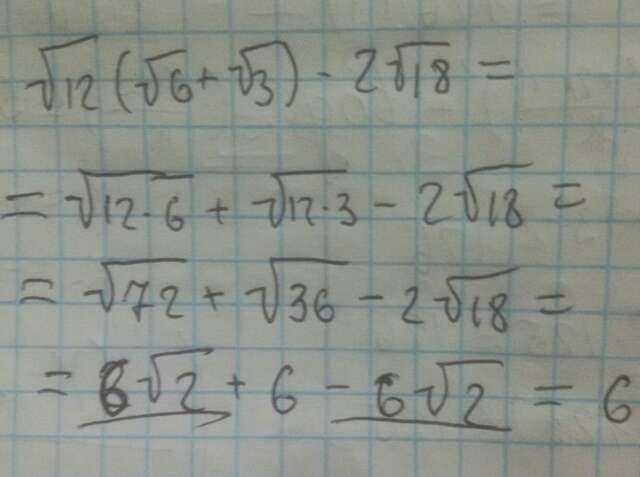 √12 (√6 + √3) - 2√18 =
= √12·6 + √12·3 - 2√18 =
= √72 + √36 - 2√18 =
= 6√2 + 6 - 6√2 = 6